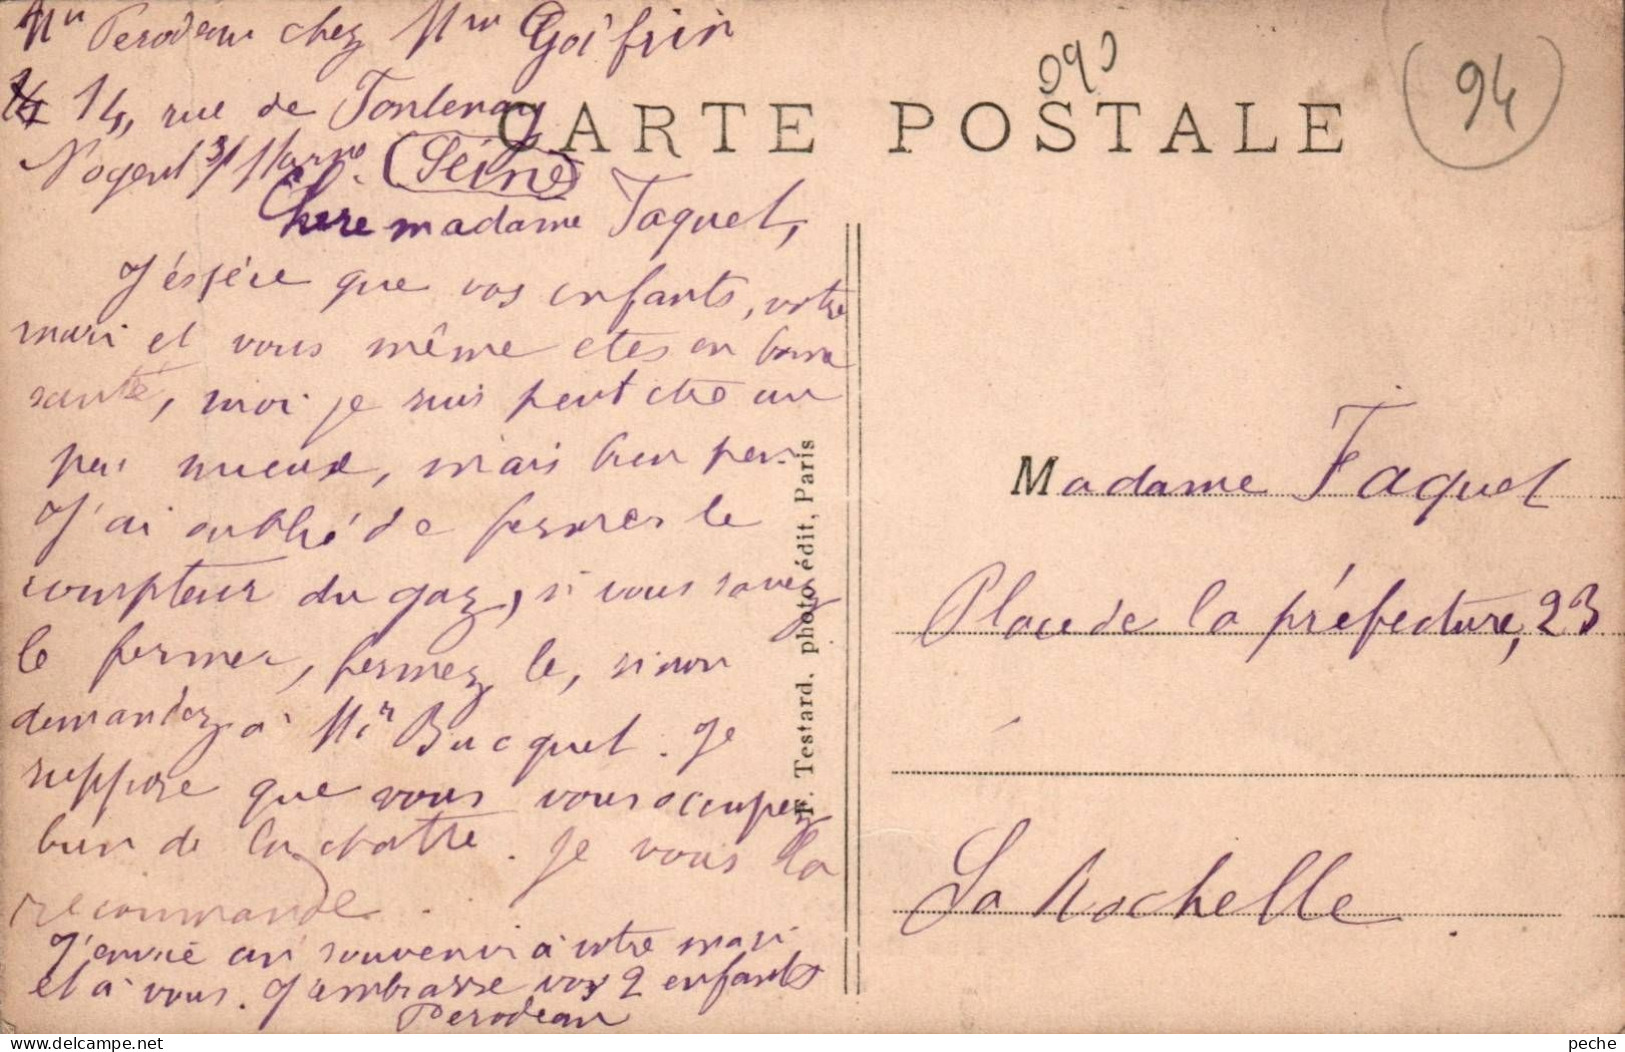 Perodeau chez Mme Goifrin
14, rue de Fontenay
Nogent s/ Marne. (Seine)
CARTE POSTALE
090
(94)
Chere madame Faquet,
J'éspére que vos enfants, votre
mari et vous même etes en bonne
santé, moi je suis peut etre un
peu mieux, mais bien peu
J'ai oublié de fermer le
compteur du gaz, si vous savez
le fermer, fermez le, sinon
demandez à Mr Bucquet. Je
suppose que vous vous occupez
bien de la chatte. Je vous la
recommande.
J'envoie un souvenir à votre mari
et à vous. J'embrasse vos 2 enfants
Perodeau
F. Testard, photo édit, Paris
Madame Faquet
Place de la préfecture, 23
La Rochelle
peche